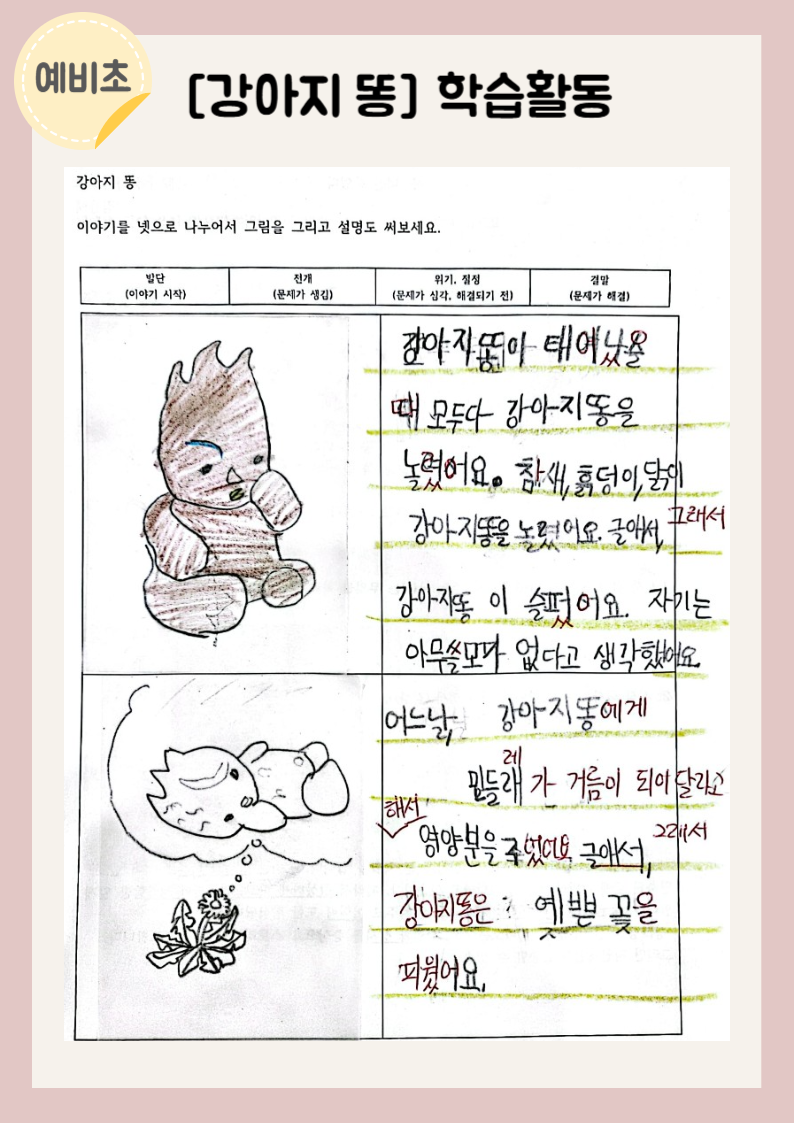 예비초
[강아지 똥] 학습활동
강아지 똥
이야기를 넷으로 나누어서 그림을 그리고 설명도 써보세요.
발단 전개 위기, 절정 결말
(이야기 시작) (문제가 생김) (문제가 심각, 해결되기 전) (문제가 해결)
강아지똥이 태여났을
때 모두다 강아지똥을
놀렸어요. 참새, 흙덩이, 닭이
강아지똥을 놀렸어요. 글애서, 그래서
강아지똥 이 슬펐어요. 자기는
아무쓸모가 없다고 생각했어요.
어느날, 강아지똥에게
레
민들래 가 거름이 되어달라고
해서
영양분을 주었어요 글애서, 그래서
강아지똥은 옛쁜 꽃을
피웠어요.